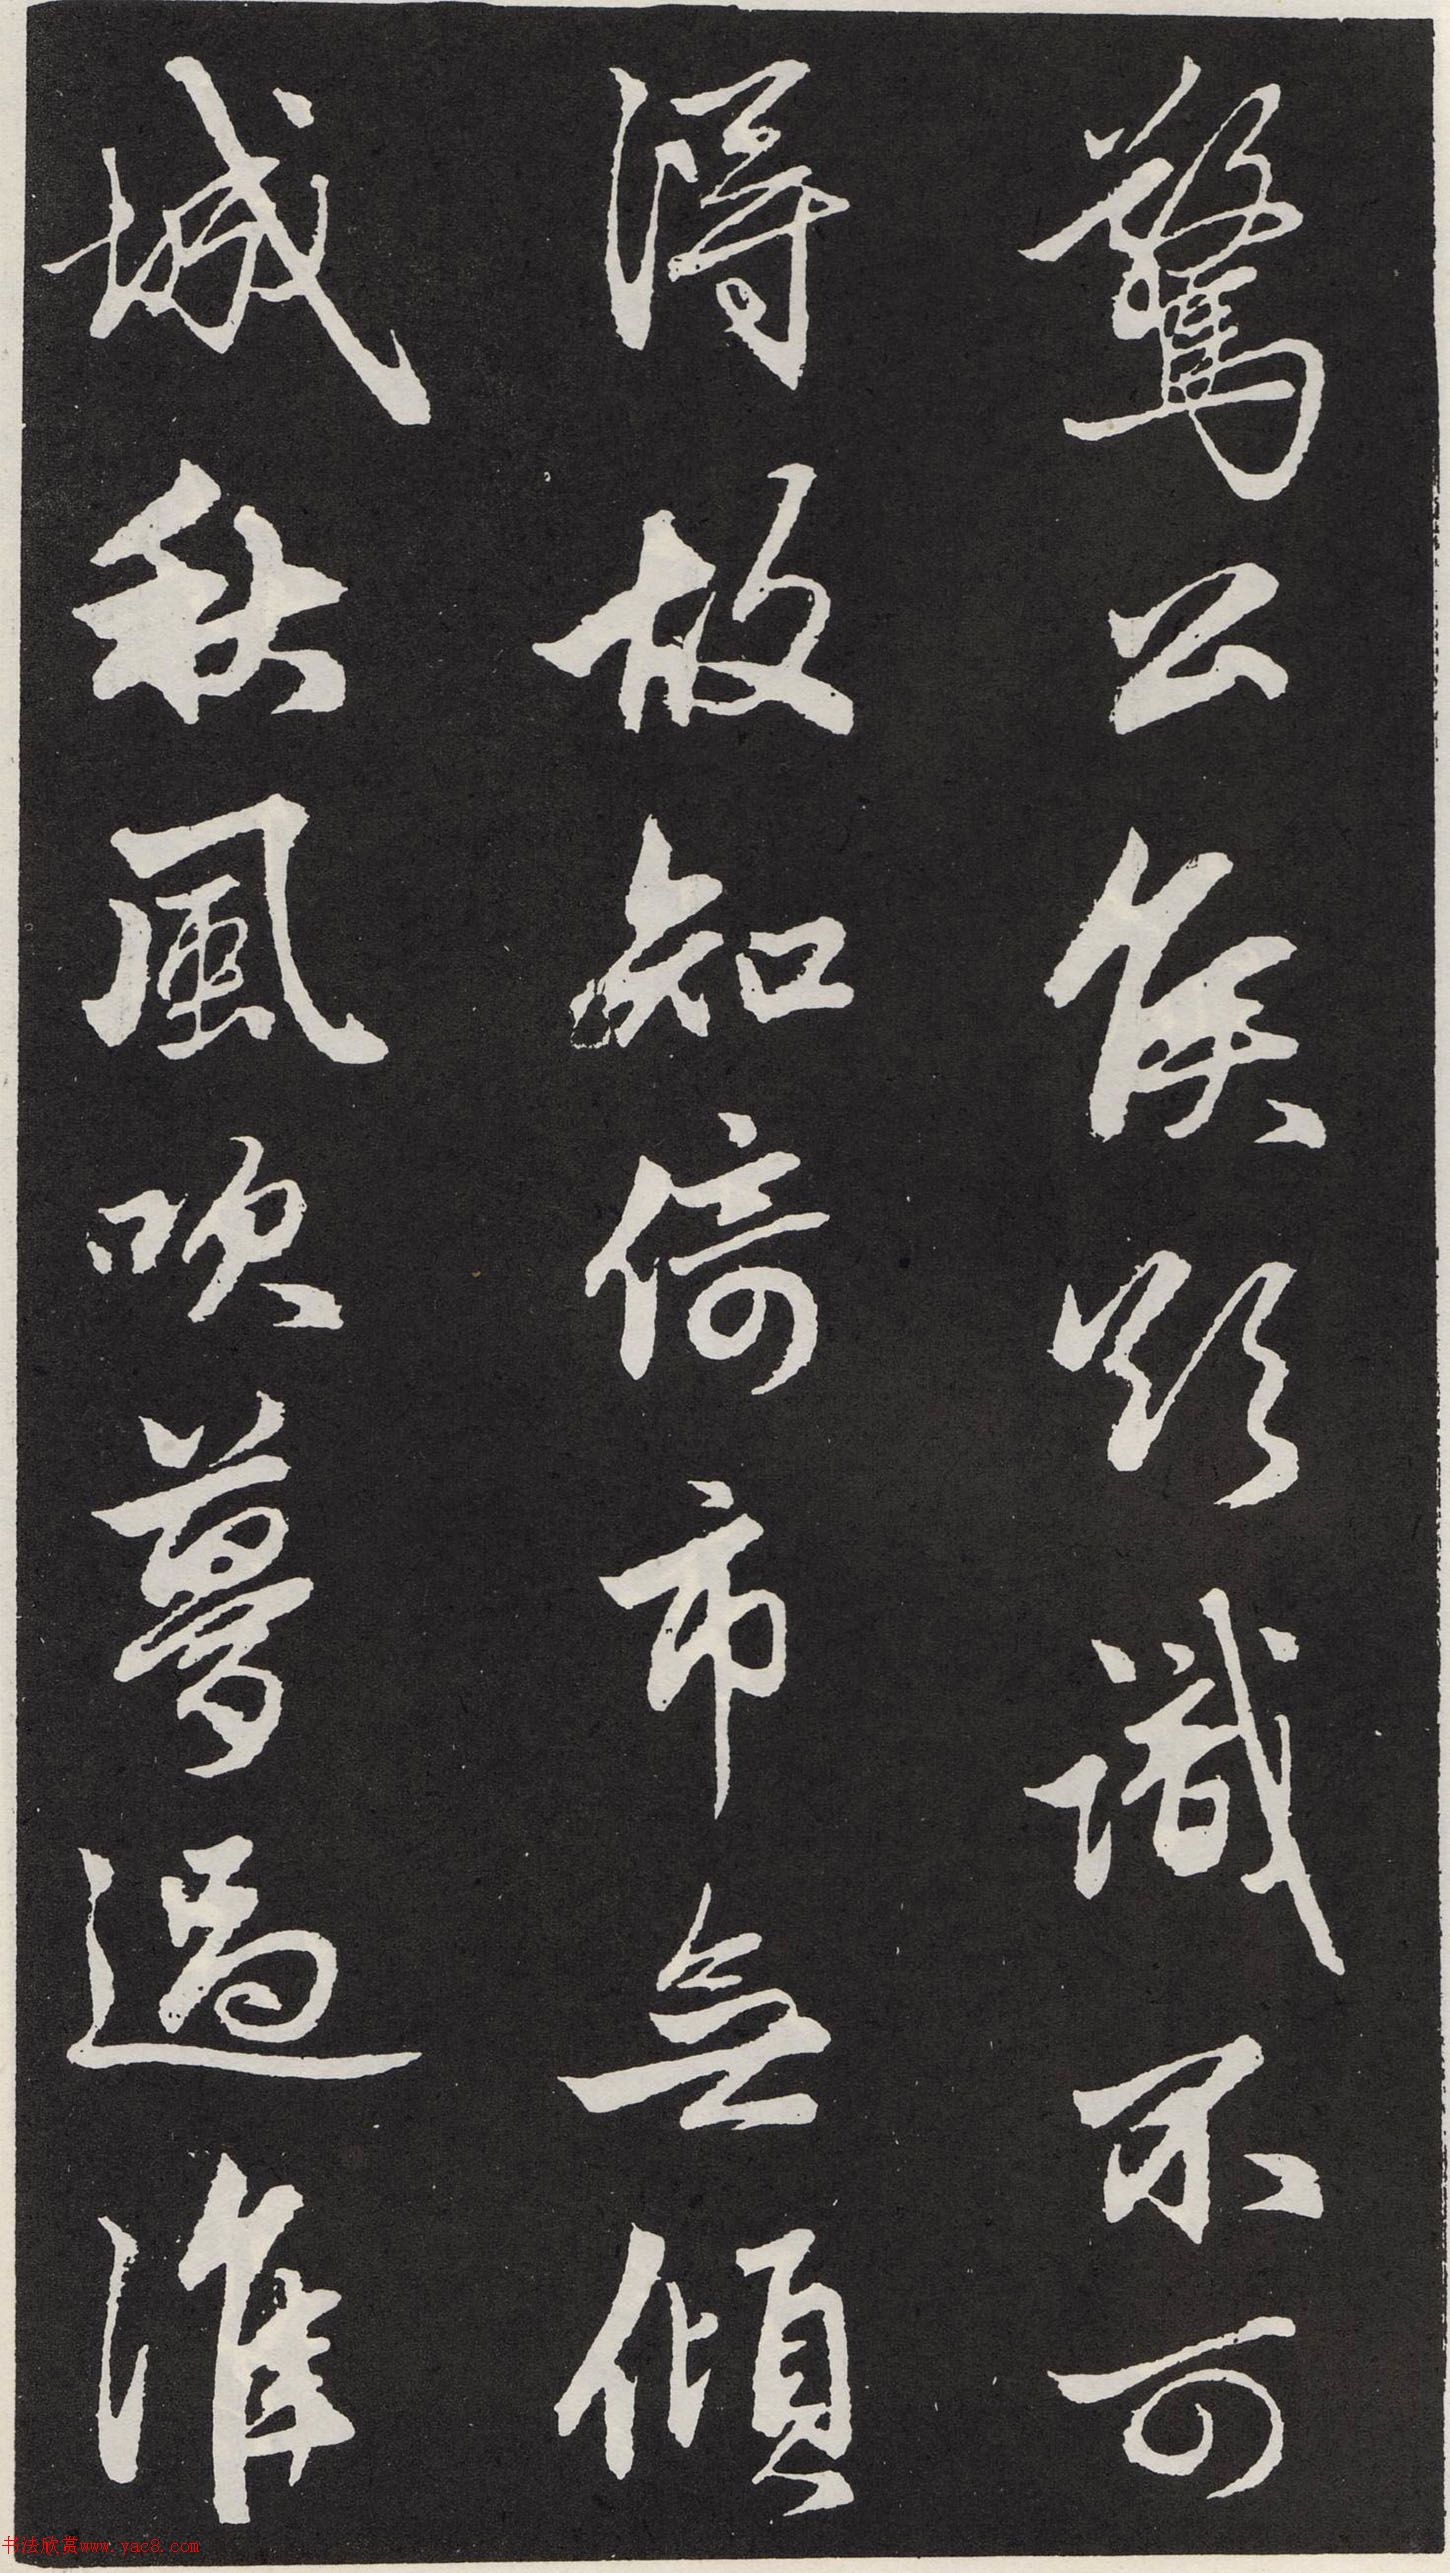 驚公侯欲識不可
得故知倚市無傾
城秋風吹夢過淮
书法欣赏www.yac8.com